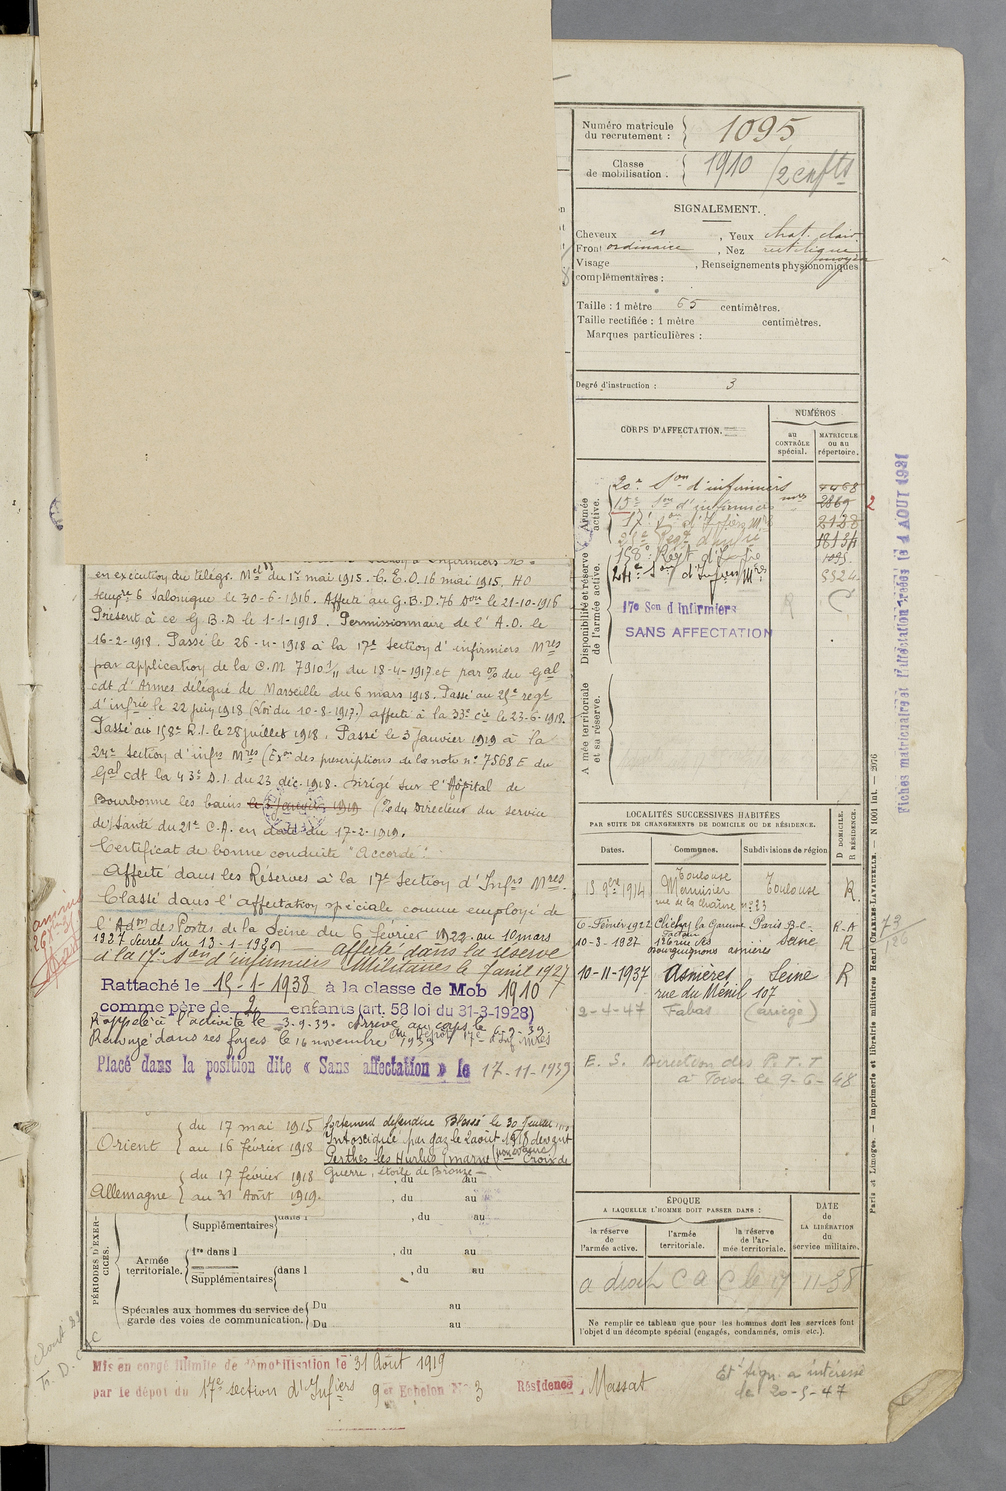 Numéro matricule du recrutement : 1095
Classe de mobilisation . 1910 / 2 enfts
SIGNALEMENT.
Cheveux , Yeux chat. clair
Front ordinaire , Nez rectiligne
Visage moyen , Renseignements physionomiques
complémentaires :
Taille : 1 mètre 65 centimètres.
Taille rectifiée : 1 mètre centimètres.
Marques particulières :
Degré d'instruction : 3
CORPS D'AFFECTATION.
NUMÉROS
au CONTRÔLE spécial.
MATRICULE ou au répertoire.
Armée active.
20e Son d'infirmiers 4468
15e Son d'infirmiers mres 2869
17e Son d'Infirs Mres 2128
158e Régt d'Infie 1095
24e Son d'Infirs Mres
Disponibilité et réserve de l'armée active.
17e Son d'infirmiers
SANS AFFECTATION
Armée territoriale et sa réserve.
en exécution du télégr. Mel du 17 mai 1915. C. E. O. 16 mai 1915. HO
tempre 6 Salonique le 30-6-1916. Affecté au G.B.D. 76 Don le 21-10-1916
Présent à ce G.B.D le 1-1-1918. Permissionnaire de l'A.O. le
16-2-1918. Passé le 26-4-1918 à la 17e Section d'infirmiers Mres
par application de la C.M 7910 3/11 du 18-4-1917 et par %o du Gal
cdt d'Armes délégué de Marseille du 6 mars 1918. Passé au 21e regt
d'infrie le 22 juin 1918 (Loi du 10-8-1917.) affecté à la 33e cie le 23-6-1918.
Passé au 158e R.I. le 28 juillet 1918. Passé le 3 Janvier 1919 à la
24e Section d'infrs Mres (Exon des prescriptions de la note no 7568 E du
Gal cdt la 43e D.I. du 23 déc. 1918. Dirigé sur l'Hôpital de
Bourbonne les bains le 3 Janvier 1919 (%o du Directeur du service
de Santé du 21e C.A. en date du 17-2-1919.
Certificat de bonne conduite "Accordé".
Affecté dans les Réserves à la 17e Section d'Infrs Mres.
Classé dans l'affectation spéciale comme employé de
l'Adon des Postes de la Seine du 6 février 1922 au 10 mars
1927 Décret du 13-1-1930 affecté dans la réserve
à la 17e Son d'infirmiers Militaires le 7 avril 1927
Rattaché le 15-1-1938 à la classe de Mob 1910
comme père de 2 enfants (art. 58 loi du 31-3-1928)
Rappelé à l'activité le 3.9.39. Arrivé au corps le 6-9-39
Renvoyé dans ses foyers le 16 novembre 1939
Placé dans la position dite « Sans affectation » le 17-11-1939
Orient { du 17 mai 1915 au 16 février 1918
Allemagne { du 17 février 1918 au 31 Août 1919.
fortement défendue Blessé le 30 Juillet
Intoxiqué par gaz le 2 août 1918 devant
Perthes les Hurlus (marne) Croix de
Guerre, étoile de Bronze
, du au
, du au
PÉRIODES D'EXERCICES.
Supplémentaires { dans l , du au
Armée territoriale.
1re dans l , du au
Supplémentaires { dans l , du au
Spéciales aux hommes du service de garde des voies de communication.
Du au
Du au
LOCALITÉS SUCCESSIVES HABITÉES
PAR SUITE DE CHANGEMENTS DE DOMICILE OU DE RÉSIDENCE.
Dates. Communes. Subdivisions de région
D DOMICILE. R RÉSIDENCE.
15 9bre 1914 Toulouse rue de la Chaîne no 33 Toulouse R
6 Février 1922 Clichy la Garenne Paris B.C. R-A
10-3-1927 126 rue des Bourguignons asnières Seine R
10-11-1937 Asnières Seine R
rue du Ménil 107
2-4-47 Fabas (ariège)
E. S. Direction des P.T.T
à Foix le 9-6-48
ÉPOQUE
A LAQUELLE L'HOMME DOIT PASSER DANS :
la réserve de l'armée active.
l'armée territoriale.
la réserve de l'armée territoriale.
DATE de LA LIBÉRATION du service militaire.
Ne remplir ce tableau que pour les hommes dont les services font
l'objet d'un décompte spécial (engagés, condamnés, omis etc.).
Mis en congé illimité de démobilisation le 31 Août 1919
par le dépôt du 17e section d'Infiers 9e Echelon No 3 Résidence Massat
Et sign. a intéressé
le 20-5-47
Paris et Limoges. — Imprimerie et librairie militaires Henri CHARLES-LAVAUZELLE. — N 1001 int. — 2076
73/126
2